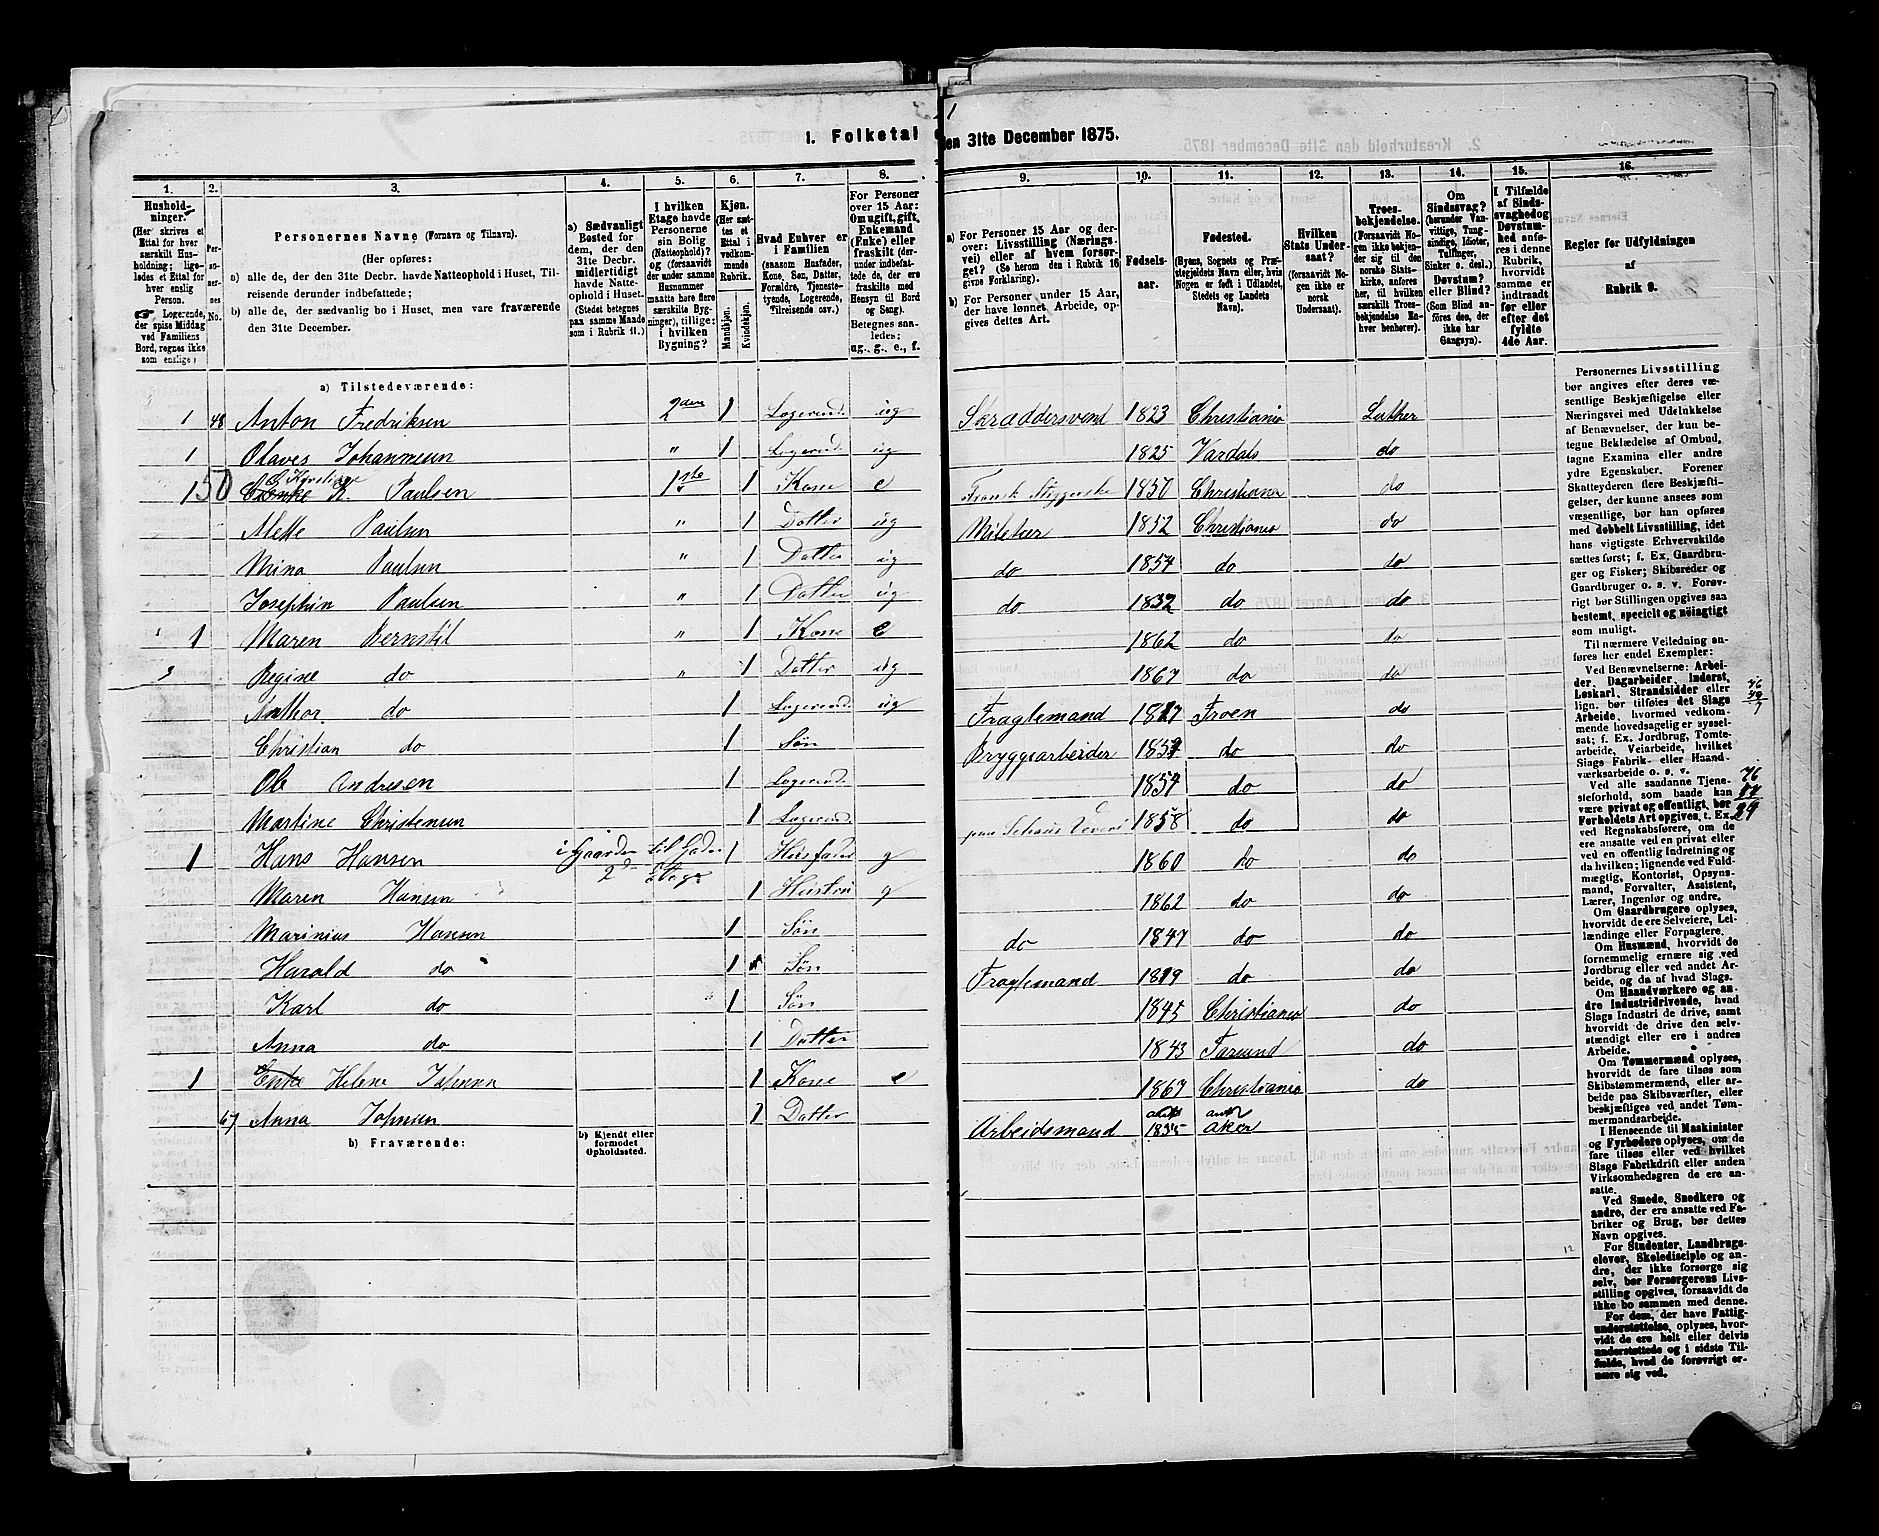 1. Folketal
den 31te December 1875.
1.
2.
3.
4.
5.
6.
7.
8.
9.
10.
11.
12.
13.
14.
15.
16.
Hushold-
ninger.
(Her skrives et
Ettal for hver
særskilt Hus-
holdning; lige-
ledes et Ettal for
hver enslig
Person.
☛ Logerende,
der spise Middag
ved Familiens
Bord, regnes ikke
som enslige)
Per-
so-
ner-
nes
No.
Personernes Navne (Fornavn og Tilnavn).
(Her opføres:
a) alle de, der den 31te Decbr. havde Natteophold i Huset, Til-
reisende derunder indbefattede;
b) alle de, der sædvanlig bo i Huset, men vare fraværende
den 31te December.
a) Sædvanligt
Bosted for
dem, der den
31te Decbr.
midlertidigt
havde Natte-
ophold i Huset.
(Stedet betegnes
paa samme Maade
som i Rubrik 11.)
I hvilken
Etage havde
Personerne
sin Bolig
(Natteophold)?
og (forsaavidt
der under samme
Husnummer
maatte høre flere
særskilte Byg-
ninger), tillige:
i hvilken
Bygning?
Kjøn.
(Her sæt-
tes et
Ettal i
vedkom-
mende
Rubrik.
Mandkjøn.
Kvindekjøn.
Hvad Enhver er
i Familien
(saasom Husfader,
Kone, Søn, Datter,
Forældre, Tjeneste-
tyende, Logerende,
Tilreisende osv.)
For Personer
over 15 Aar:
Om ugift, gift,
Enkemand
(Enke) eller
fraskilt (der-
under indbe-
fattede de, der
ere fraskilte
med Hensyn
til Bord
og Seng).
Betegnes saa-
ledes:
ug., g., e., f.
a) For Personer 15 Aar og der-
over: Livsstilling (Nærings-
vei) eller af hvem forsør-
get? (Se herom den i Rubrik 16
givne Forklaring).
b) For Personer under 15 Aar,
der have lønnet Arbeide, op-
gives dettes Art.
Fødsels-
aar.
Fødested.
(Byens, Sognets og Præ-
stegjeldets Navn eller, hvis
Nogen er født i Udlandet,
Stedets og Landets
Navn).
Hvilken
Stats Under-
saat?
(forsaavidt No-
gen ikke er
norsk
Undersaat).
Troes-
bekjendelse.
(Forsaavidt No-
gen ikke bekjen-
der sig til den
norske Stats-
kirke, anføres
her, til hvilken
særskilt Troes-
bekjendelse En-
hver henhører).
Om
Sindssvag?
(herunder Van-
vittige, Tung-
sindige, Idioter,
Tullinger,
Sinker o. desl.)
Døvstum?
eller Blind?
(Som Blind an-
føres den, der
ikke har
Gangsyn).
I Tilfælde
af Sinds-
svaghed og
Døvstum-
hed anfø-
res i denne
Rubrik,
hvorvidt
samme er
indtraadt
før eller
efter det
fyldte
4de Aar.
Regler for Udfyldningen
af
Rubrik 9.
a) Tilstedeværende:
1 48 Anton Fredriksen 2den 1 Logerend. ug Skræddersvend 1823 Christiania Luther
1 Olaves Johannesen " 1 Logerend ug 1825 Vardals do
1 50 Karoline K. Paulsen 1ste 1 Kone e Fransk 1850 Christiania do
Mette Paulsen " 1 Datter ug 1852 Christiania do
Mina Paulsen " 1 Datter ug do 1854 do do
Josephin Paulsen " 1 Datter ug do 1832 do do
1 Maren Bernstil " 1 Kone e 1862 do do
Regine do " 1 Datter ug 1867 do do
Anthor do 1 Logerend ug Fraglemand 1817 Froen do
Christian do 1 Søn Bryggearbeider 1857 do do
Ole Andresen 1 Logerend. 1854 do do
Martine Christensen 1 Logerend. paa Schous Veveri 1858 do do
1 Hans Hansen i Gaarden til Gaden 2d Etage 1 Husfader g 1860 do do
Maren Hansen 1 Hustru g 1862 do do
Marinius Hansen 1 Søn do 1847 do do
Harald do 1 Søn Fraglemand 1819 do do
Karl do 1 Søn 1845 Christiania do
Anna do 1 Datter 1843 Farsund do
1 Enke Helene Johnsen 1 Kone e 1867 Christiania do
67 Anna Johnsen 1 Datter Arbeidsmand 1835 aker
b) Fraværende:
b) Kjendt eller
formodet
Opholdssted.
12
76
49
7
76
47
29
Personernes Livsstilling
bør angives efter deres væ-
sentlige Beskjæftigelse eller
Næringsvei med Udelukkelse
af Benævnelser, der kun be-
tegne Beklædelse af Ombud,
tagne Examina eller andre
ydre Egenskaber. Forener
Skatteyderen flere Beskjæfti-
gelser, der kunne ansees som
væsentlige, bør han opføres
med dobbelt Livsstilling, idet
hans vigtigste Erhvervskilde
sættes først; f. Ex. Gaardbru-
ger og Fisker; Skibsreder og
Gaardbruger o. s. v. Forøv-
rigt bør Stillingen opgives saa
bestemt, specielt og nøiagtigt
som muligt.
Til nærmere Veiledning an-
føres her endel Exempler:
Ved Benævnelserne: Arbei-
der, Dagarbeider, Inderst,
Løskarl, Strandsidder eller
lign. bør tilføies det Slags
Arbeide, hvormed vedkom-
mende hovedsagelig er syssel-
sat; f. Ex. Jordbrug, Tomte-
arbeide, Veiarbeide, hvilket
Slags Fabrik- eller Haand-
værksarbeide o. s. v.
Ved alle saadanne Tjene-
steforhold, som baade kan
være privat og offentligt, bør
Forholdets Art opgives, t. Ex.
ved Regnskabsførere, om de
ere ansatte ved en privat eller
ved en offentlig Indretning og
da hvilken; lignende ved Fuld-
mægtig, Kontorist, Opsyns-
mand, Forvalter, Assistent,
Lærer, Ingeniør og andre.
Om Gaardbrugere oplyses,
hvorvidt de ere Selveiere, Lei-
lændinge eller Forpagtere.
Om Husmænd, hvorvidt de
fornemmelig ernære sig ved
Jordbrug eller ved andet Ar-
beide, og da af hvad Slags.
Om Haandværkere og an-
dre Industridrivende, hvad
Slags Industri de drive, samt
hvorvidt de drive den selv-
stændigt eller ere i andres
Arbeide.
Om Tømmermænd oplyses,
hvorvidt de fare tilsøs som
Skibstømmermænd, eller ar-
beide paa Skibsværfter, eller
beskjæftiges ved andet Tøm-
mermandsarbeide.
I Henseende til Maskinister
og Fyrbødere oplyses, om de
fare tilsøs eller ved hvilket
Slags Fabrikdrift eller anden
Virksomhedsgren de ere an-
satte.
Ved Smede, Snedkere og
andre, der ere ansatte ved Fa-
briker og Brug, bør dettes
Navn opgives.
For Studenter, Landbrugs-
elever, Skoledisciple og an-
dre, der ikke forsørge sig
selv, bør Forsørgerens Livs-
stilling opgives, forsaavidt de
ikke bo sammen med denne.
For dem, der have Fattig-
understøttelse, oplyses, hvor-
vidt de ere helt eller delvis
understøttede og i sidste Til-
fælde, hvad de forøvrigt er-
nære sig ved.